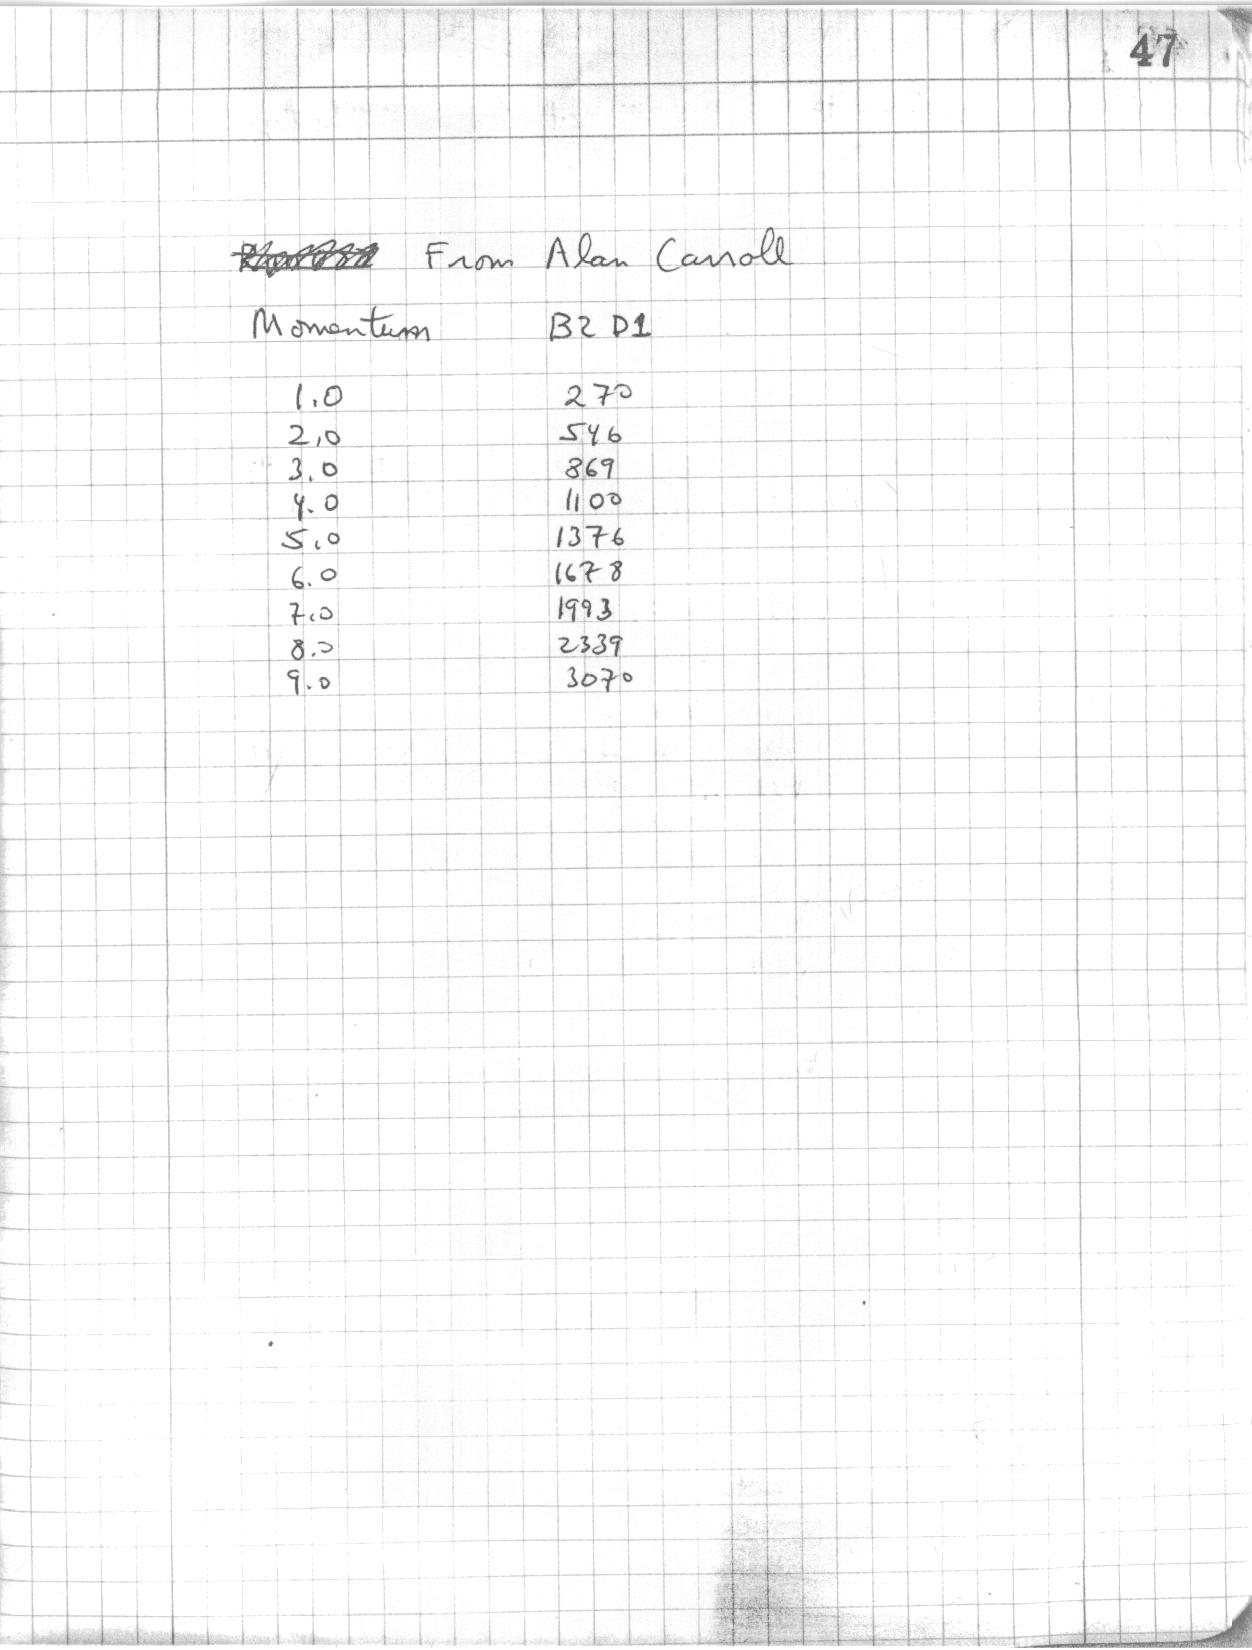 47
From Alan Carroll
Momentum B2 D1
1.0 270
2.0 546
3.0 869
4.0 1100
5.0 1376
6.0 1678
7.0 1993
8.0 2339
9.0 3070